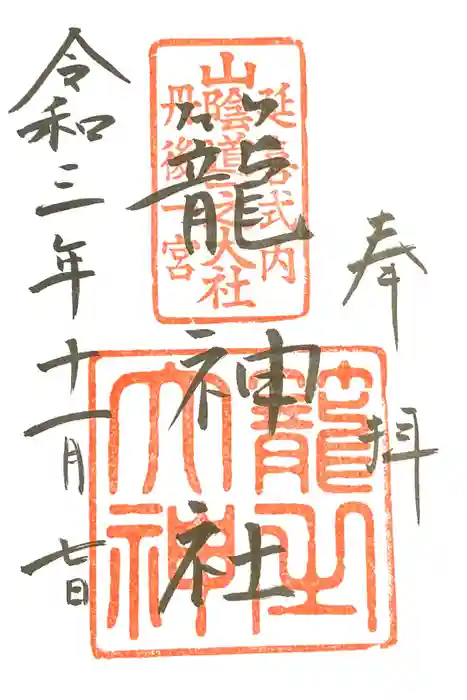 奉拝
延喜式内
山陰道一之大社
丹後一宮
籠神社
籠之大神
令和三年十一月七日